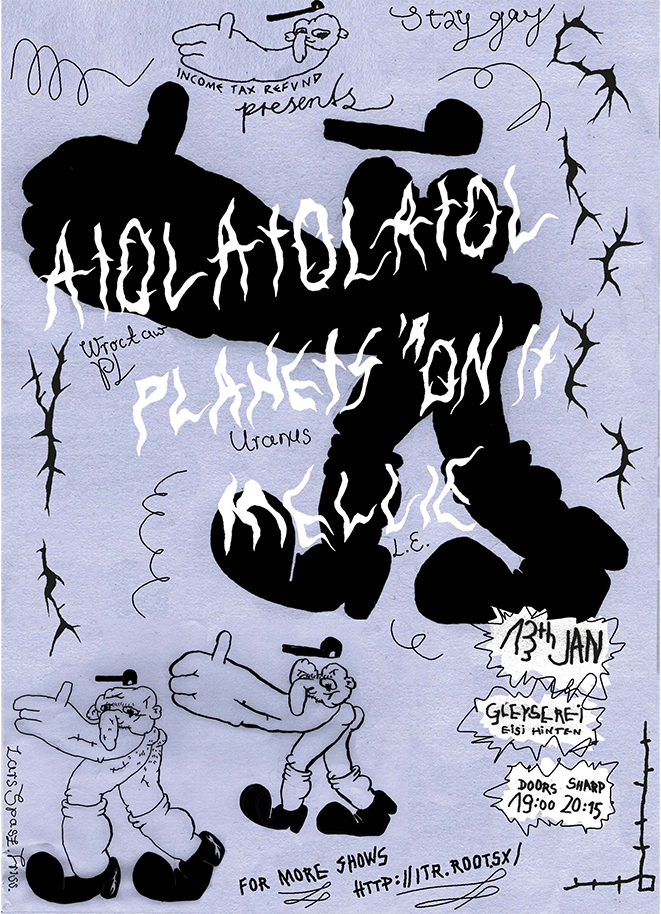 stay gay
INCOME TAX REFUND
presents
AIOLAIOLAIOL
Wrocław
PL
PLANETS 'R ON IT
Uranus
MELLIE
L.E.
13th JAN
GLEYSEREI
EISI HINTEN
DOORS SHARP
19:00 20:15
FOR MORE SHOWS
HTTP://ITR.ROOTSX/